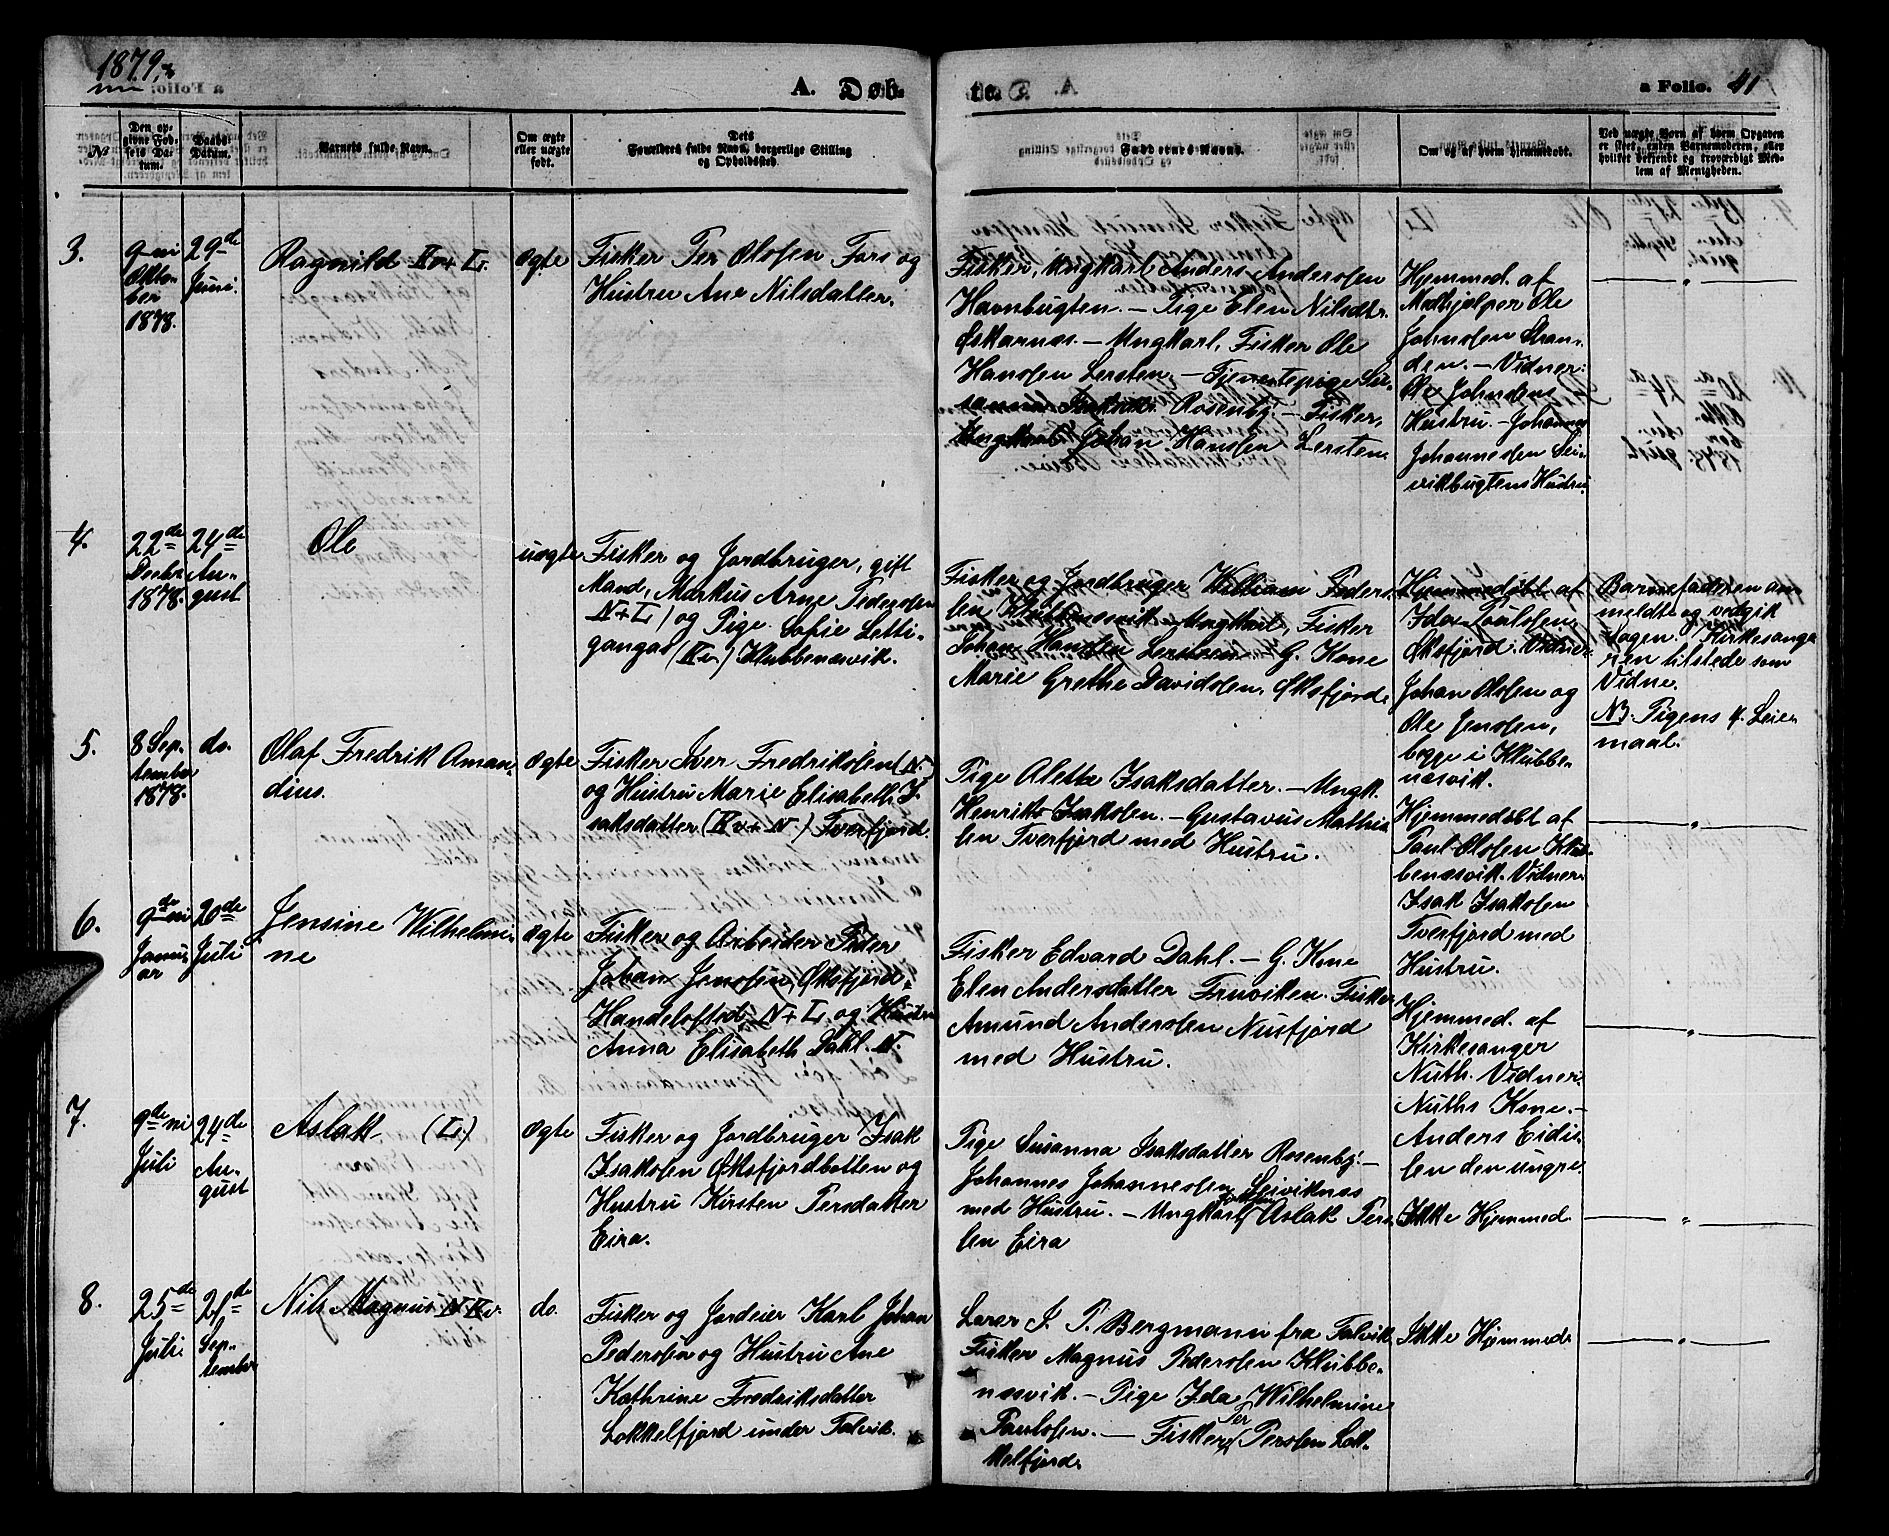 1879.
A. Døb-
te.
a Folio. 41
No
Den op-
givne Fød-
sels Da-
tum.
Daabs-
Datum.
Barnets fulde Navn.
Om ægte
eller uægte
født.
Dets
Forældres fulde Navn, borgerlige Stilling
og Opholdssted.
Faddernes Navne.
Om og af hvem hjemmedøbt.
Ved uægte Børn af hvem Opgaven
er skeet, enten Barnemoderen, eller
hvilket bekjendt og troværdigt Med-
lem af Menigheden.
3.
9-ni
Okto-
ber
1878.
29de
Juni.
Ragnild Kv+L.
ægte
Fisker Per Olosen Fors og
Hustru Ane Nilsdatter.
Fisker, Ungkarl Anders Andersen
Havnbugten. – Pige Elen Nilsdtr.
Øskarnæs. – Ungkarl, Fisker Ole
Hansen Lersten. – Tjenestepige Su-
sanna Isaksdr. Rosenby. – Fisker,
Ungkarl Johan Hansen Lersten.
Hjemmed. af
Medhjælper Ole
Johnsen Stran-
den. – Vidner:
Ole Johnsens
Hustru. – Johannes
Johannesen Lei-
vikbugtens Hustru.
4.
22de
Decbr.
1878.
24de
Au-
gust
Ole
uægte
Fisker og Jordbruger, gift
Mand, Markus Arne Pedersen
N+L) og Pige Sofie Letti-
gangas (Kv.) Klubbenæsvik.
Fisker og Jordbruger William Peder-
sen Klubbenæsvik – Ungkarl, Fisker
Johan Hansen Lersten – G. Kone
Marie Grethe Davidsen, Øksfjord.
Hjemmedøbt af
Ida Paulsen
Øksfjord. Vidner:
Johan Olosen og
Ole Jensen,
begge i Klubbe-
næsvik.
Barnefaderen an-
meldte og vedgik
Sagen. Kirkesange-
ren tilstede som
Vidne.
NB. Pigens 4. Leier-
maal.
5.
8 Sep-
tember
1878.
do.
Olaf Fredrik Aman-
dius.
ægte
Fisker Iver Fredriksen (N.)
og Hustru Marie Elisabeth I-
saksdatter (Kv+N.) Tverfjord.
Pige Aletta Isaksdatter. – Ungk.
Henrik Isaksen. – Gustavus Mathi-
sen Tverfjord med Hustru.
Hjemmedøbt af
Paul Olosen Klub-
benæsvik. Vidner:
Isak Isaksen
Tverfjord med
Hustru.
– " –
6.
9de-ni
Janu-
ar
20de
Juli
Jensine Wilhelmi-
ne
ægte
Fisker og Arbeider Peder
Johan Jensen, Øksfjord
Handelssted N+L. og Hustru
Anna Elisabeth Dahl. N.
Fisker Edvard Dahl. – G. Kone
Elen Andersdatter Furuviken. Fisker
Amund Andersen Nusfjord
med Hustru.
Hjemmed. af
Kirkesanger
Nuth. Vidner:
Nuths Kone. –
Anders Eidis-
sen den ungre.
– " –
7.
9de-ni
Juli
24de
Au-
gust
Aslak (L.)
ægte
Fisker og Jordbruger Isak
Isaksen Øksfjordbotten og
Hustru Kirsten Persdatter
Eira.
Pige Susanna Isaksdatter Rosenby. –
Johannes Johannesen Leiviknæs
med Hustru. – Ungkarl Aslak Per-
sen Eira
Ikke Hjemmed.
– " –
8.
25de
Juli
21de
Sep-
tember
Nils Magnus N+Kv.
do.
Fisker og Jordeier Karl Johan
Pedersen og Hustru Ane
Kathrine Fredriksdatter
Lokkelfjord under Talvik.
Lærer J. P. Bergmann fra Talvik.
Fisker Magnus Pedersen Klubbe-
næsvik. – Pige Ida Wilhelmine
Paulsen. – Fisker Per Persen Lok-
kelfjord.
Ikke Hjemmed.
– " –